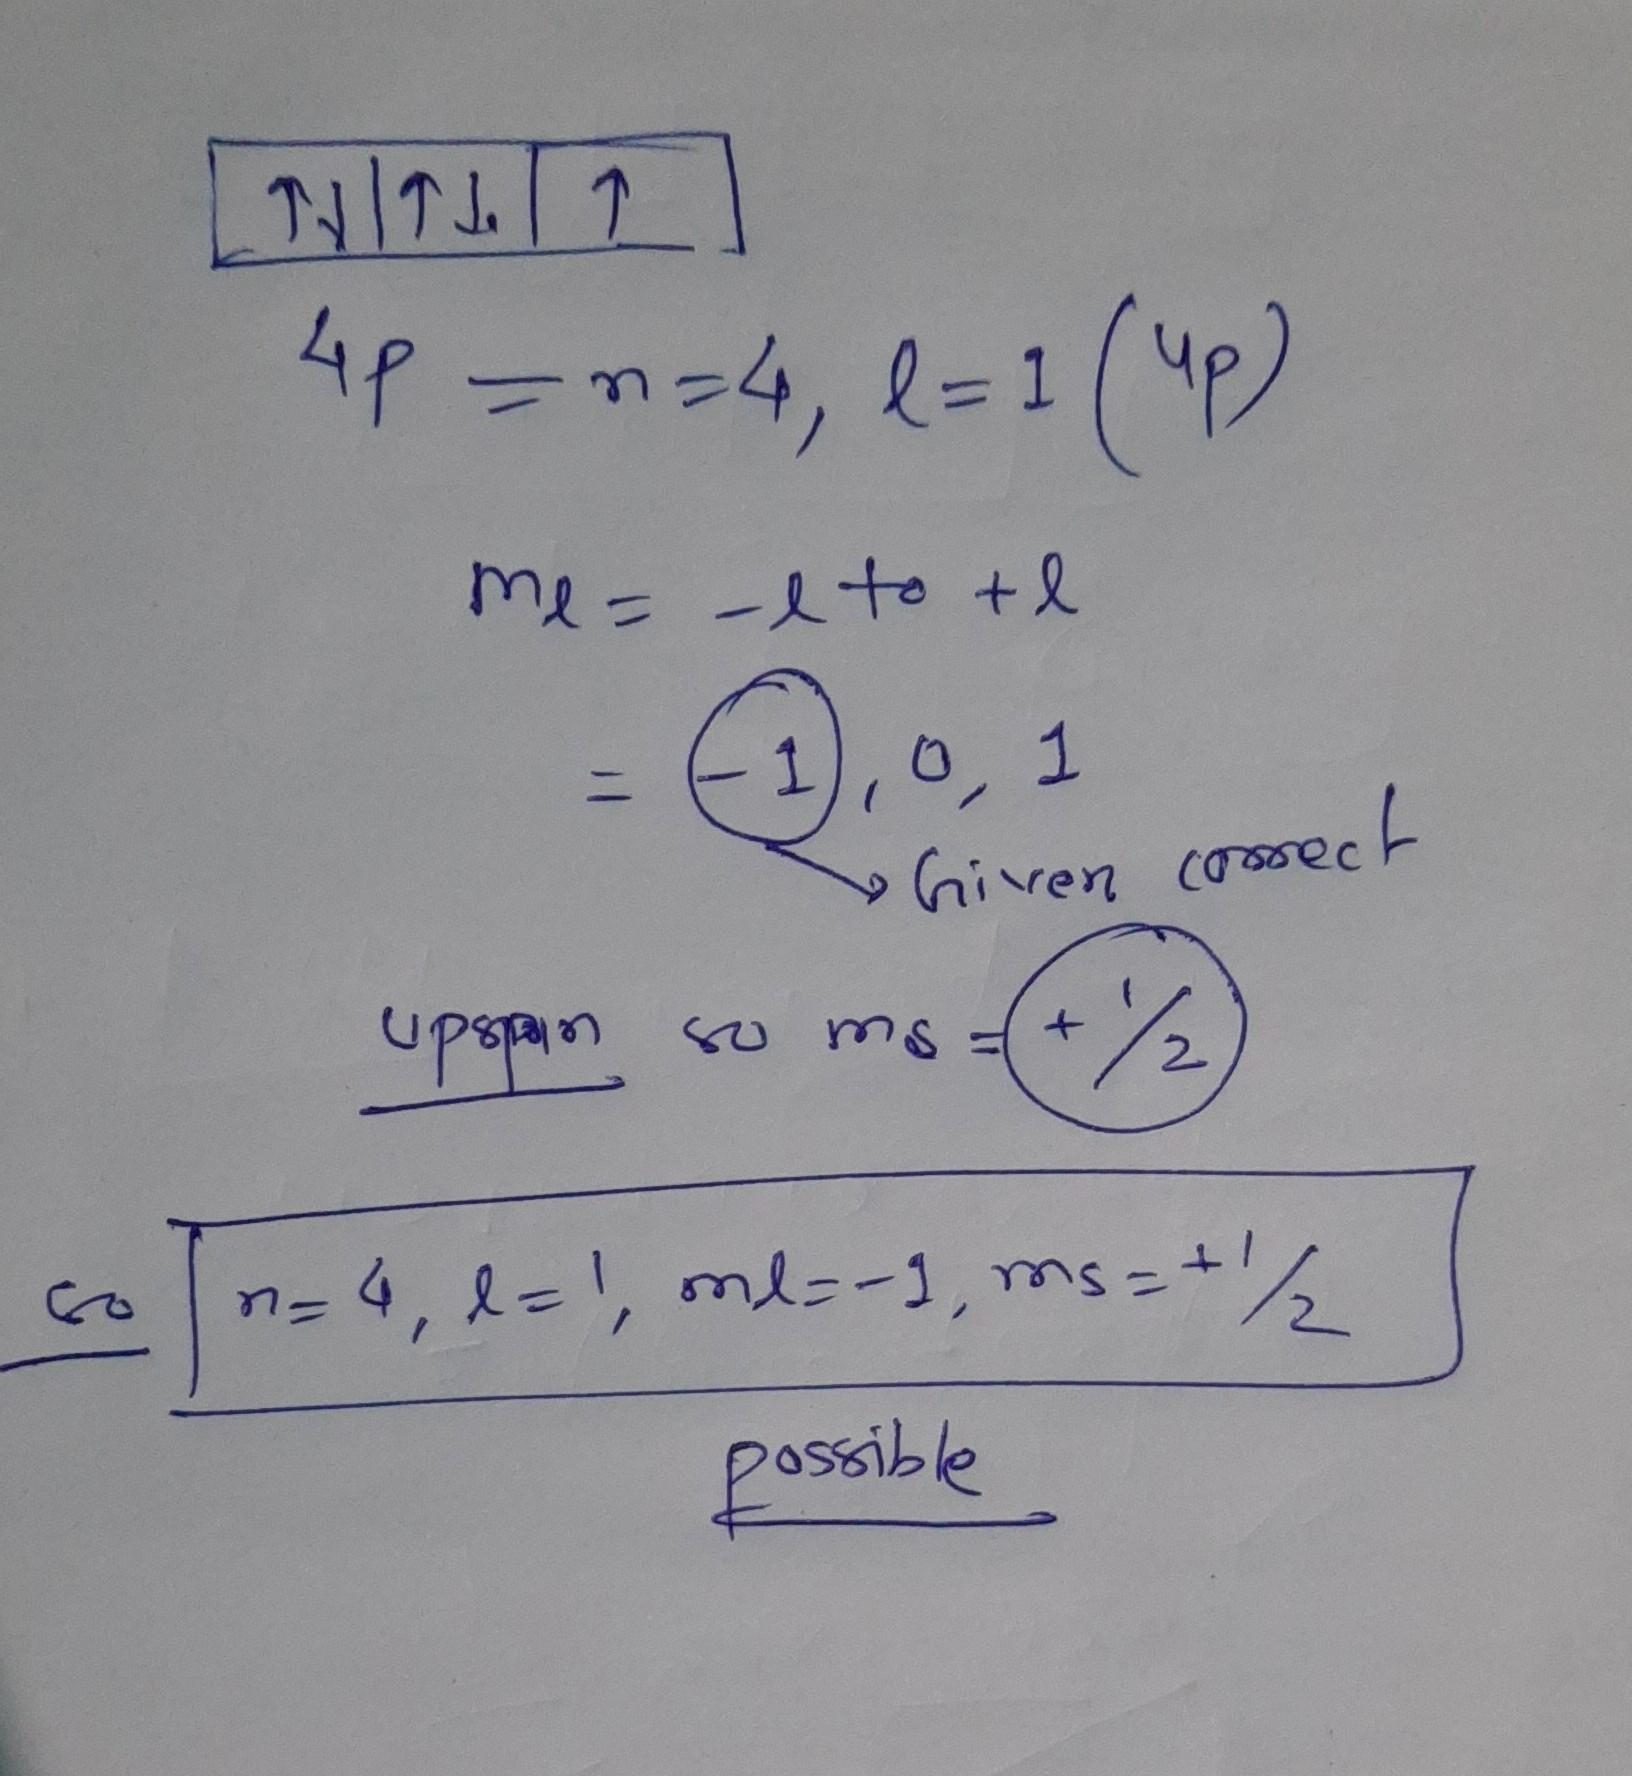 ↑↓|↑↓|↑
4p = n=4, l=1 (4p)
ml = -l to +l
= -1, 0, 1
Given correct
upspin so ms = +1/2
so n=4, l=1, ml=-1, ms=+1/2
possible